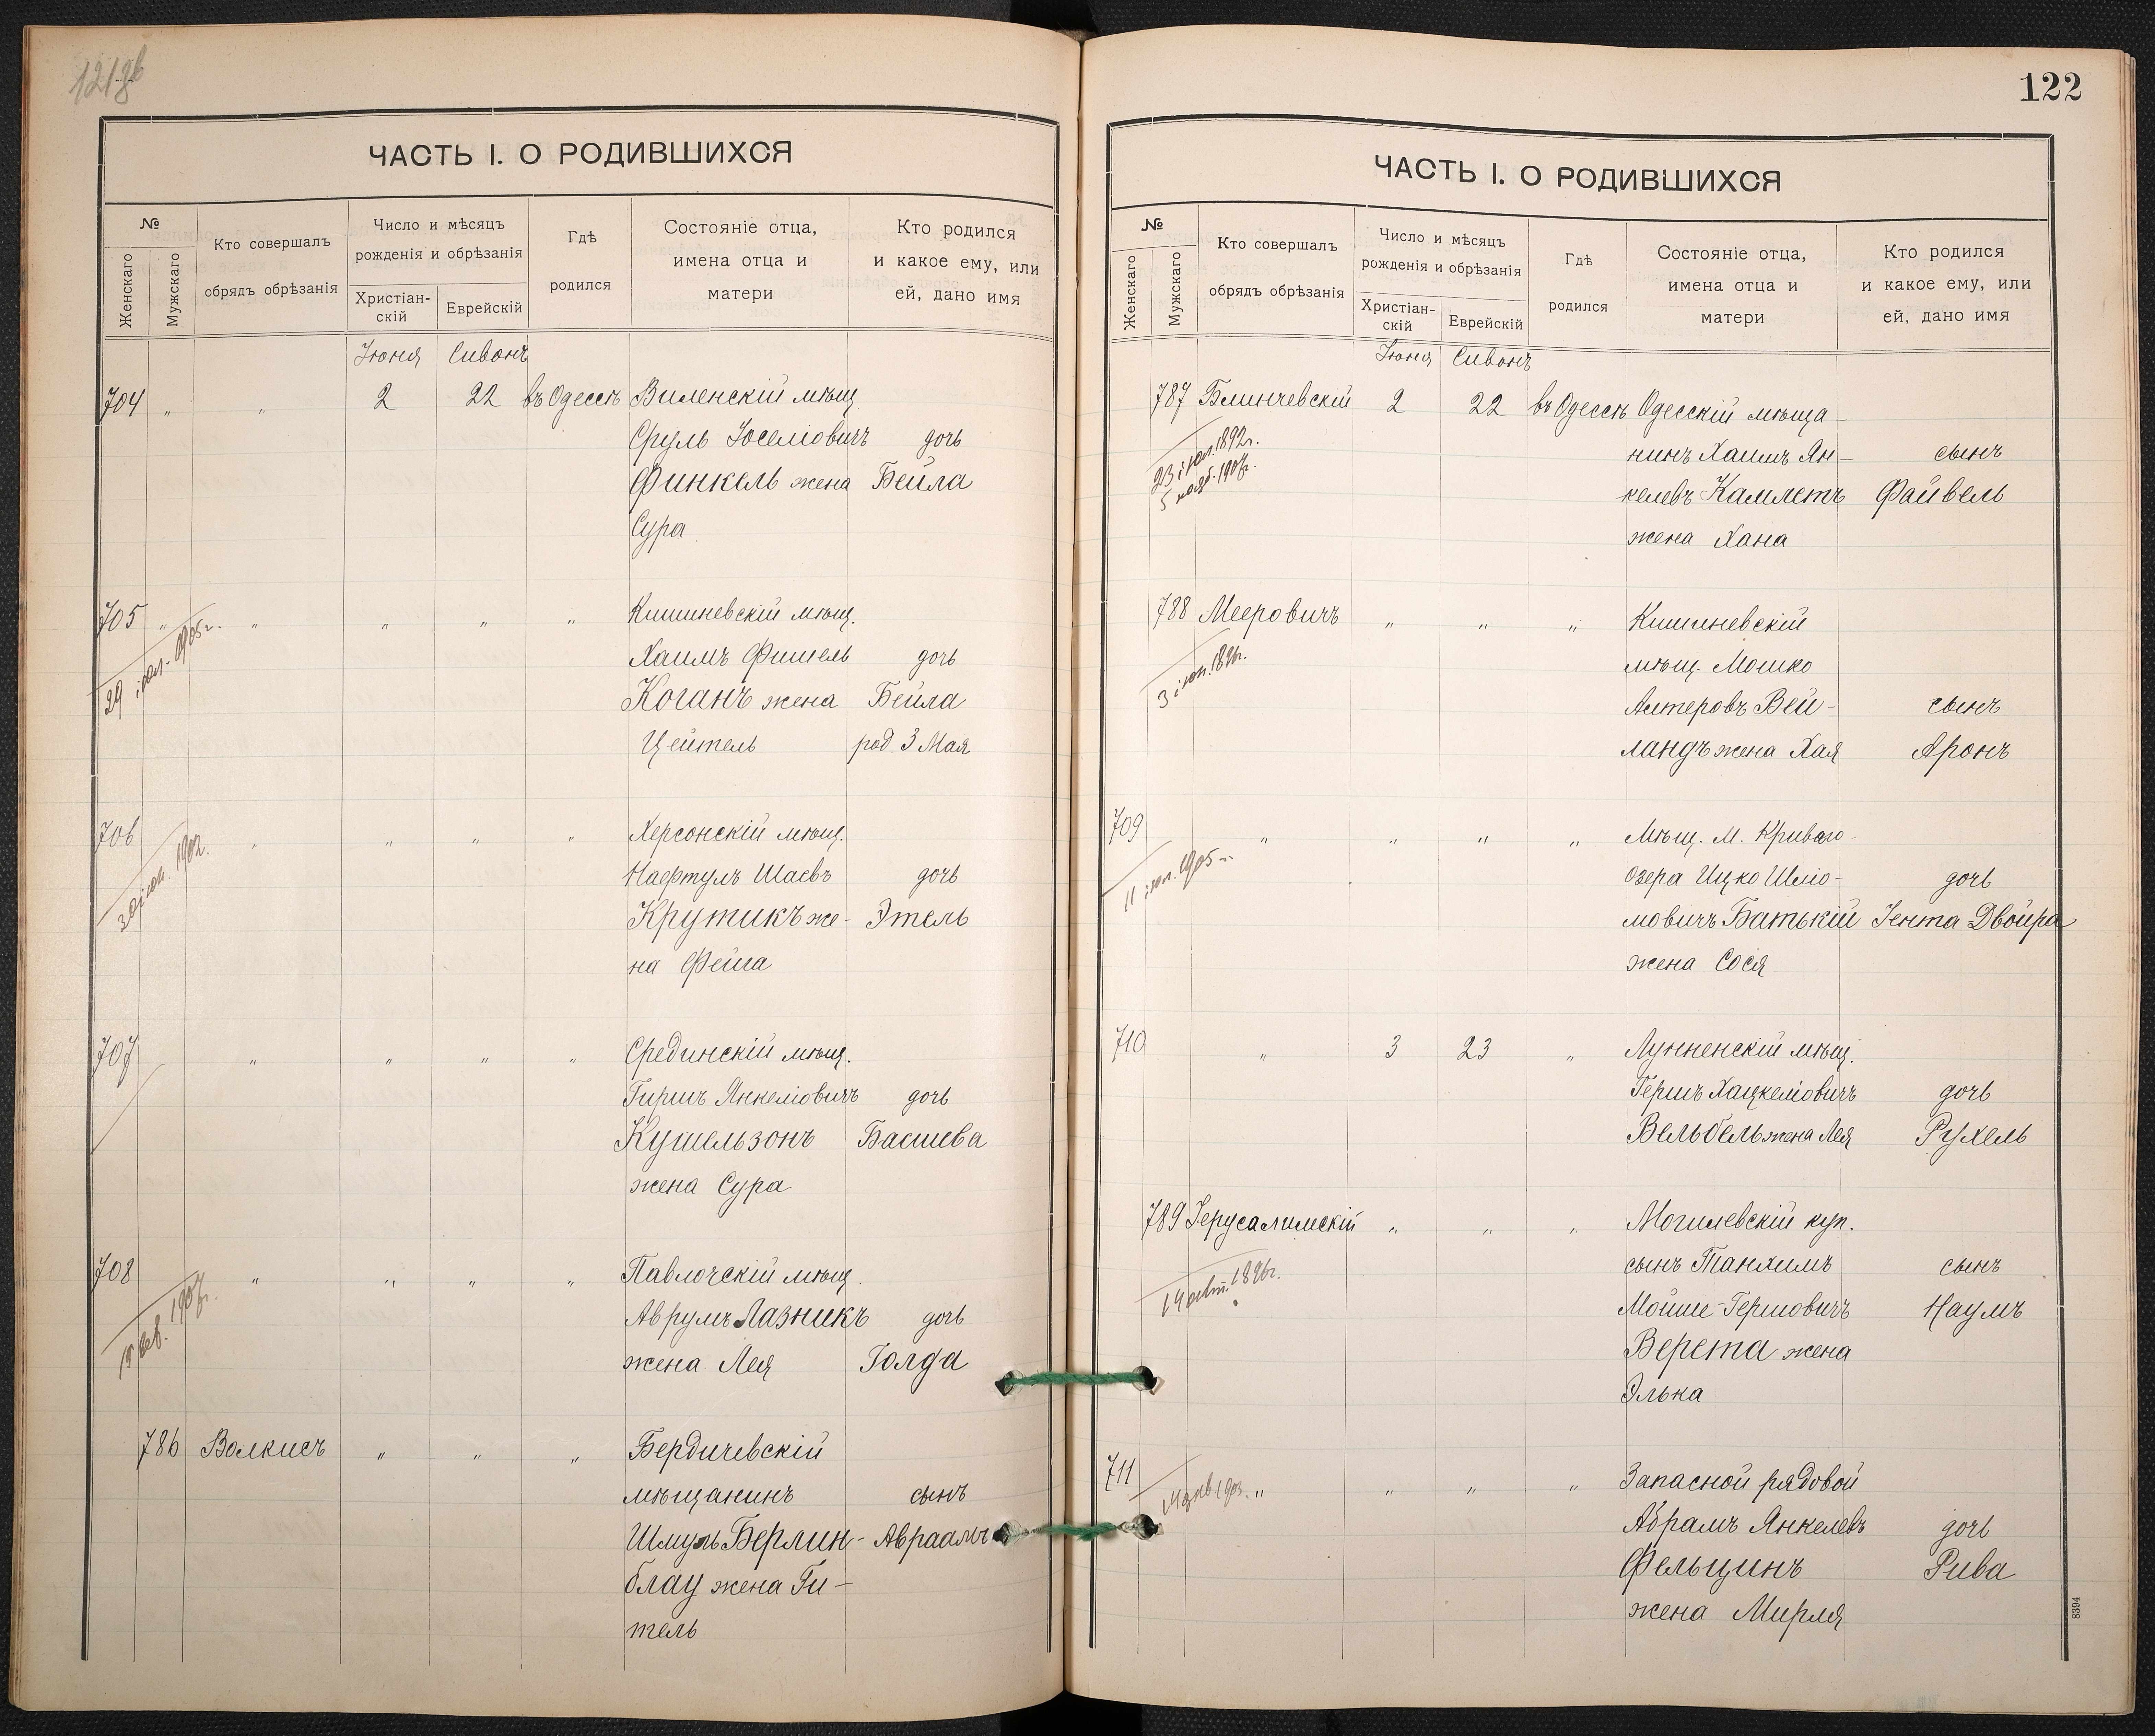 ЧАСТЬ I. О РОДИВШИХСЯ
№
Женскаго
Мужскаго
Кто совершалъ
обрядъ обрѣзанія
Число и мѣсяцъ
рожденія и обрѣзанія
Христіан-
скій
Еврейскій
Гдѣ
родился
Состояніе отца,
имена отца и
матери
Кто родился
и какое ему, или
ей, дано имя
Іюня Сивонъ
704 " " 2 22 въ Одессѣ Виленскій мѣщ
Сруль Іоселіовичъ дочь
Финкель жена Бейла
Сура
705 " " " " " Кишиневскій мѣщ.
29 іюл. 1905 г.
Хаимъ Фишель дочь
Коганъ жена Бейла
Цейтель род. 3 Мая
706 " " " " Херсонскій мѣщ.
Нафтулъ Шаевъ дочь
Крутикъ же- Этель
на Фейга
707 " " " " Срединскій мѣщ.
Гиршъ Янкеліовичъ дочь
Кушельзонъ Басшева
жена Сура
708 " " " " Павлочскій мѣщ.
Аврумъ Лазникъ дочь
жена Лея Голда
786 Волкисъ " " " Бердичевскій
мѣщанинъ сынъ
Шмуль Берлин- Авраамъ
блау жена Ги-
тель
122
ЧАСТЬ I. О РОДИВШИХСЯ
№
Женскаго
Мужскаго
Кто совершалъ
обрядъ обрѣзанія
Число и мѣсяцъ
рожденія и обрѣзанія
Христіан-
скій
Еврейскій
Гдѣ
родился
Состояніе отца,
имена отца и
матери
Кто родился
и какое ему, или
ей, дано имя
Іюня Сивонъ
787 Блинчевскій 2 22 въ Одессѣ Одесскій мѣща-
нинъ Хаимъ Ян- сынъ
келевъ Камлетъ Файвель
жена Хана
788 Мееровичъ " " " Кишиневскій
мѣщ. Мошко
Алтеровъ Вей- сынъ
ландъ жена Хая Аронъ
709 " " " " Мѣщ. м. Криваго-
11 іюл. 1905 г.
озера Ицко Шліо- дочь
мовичъ Батькій Іента Двойра
жена Сося
710 " 3 23 " Лунненскій мѣщ.
Гершъ Хацкеліовичъ дочь
Вельбель жена Лея Рухель
789 Іерусалимскій " " " Могилевскій куп.
сынъ Танхимъ сынъ
Мойше-Гершовичъ Наумъ
Верета жена
Элька
711 " " " " Запасной рядовой
Абрамъ Янкелевъ дочь
Фельцинъ Рива
жена Мирля
8394